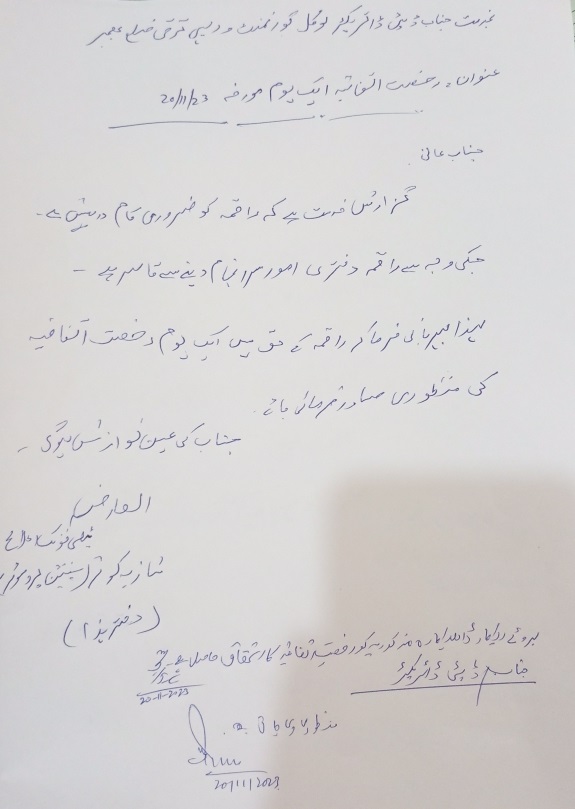 بخدمت جناب ڈپٹی ڈائریکٹر لوکل گورنمنٹ و دیہی ترقی ضلع بھمبر
عنوان: رخصت اتفاقیہ ایک یوم مورخہ 20/11/23
جناب عالی
گزارش خدمت ہے کہ راقمہ کو ضروری کام درپیش ہے۔
جسکی وجہ سے راقمہ دفتری امور سرانجام دینے سے قاصر ہے۔
لہذا مہربانی فرما کر راقمہ کے حق میں ایک یوم رخصت اتفاقیہ
کی منظوری صادر فرمائی جائے۔
جناب کی عین نوازش ہوگی۔
العارض
شازیہ کوثر (
(دفتر ہذا)
بروئے ریکارڈ اہلکارہ مذکوریہ کو رخصت اتفاقیہ کا استحقاق حاصل ہے
20-11-2023
جناب ڈپٹی ڈائریکٹر
20/11/2023